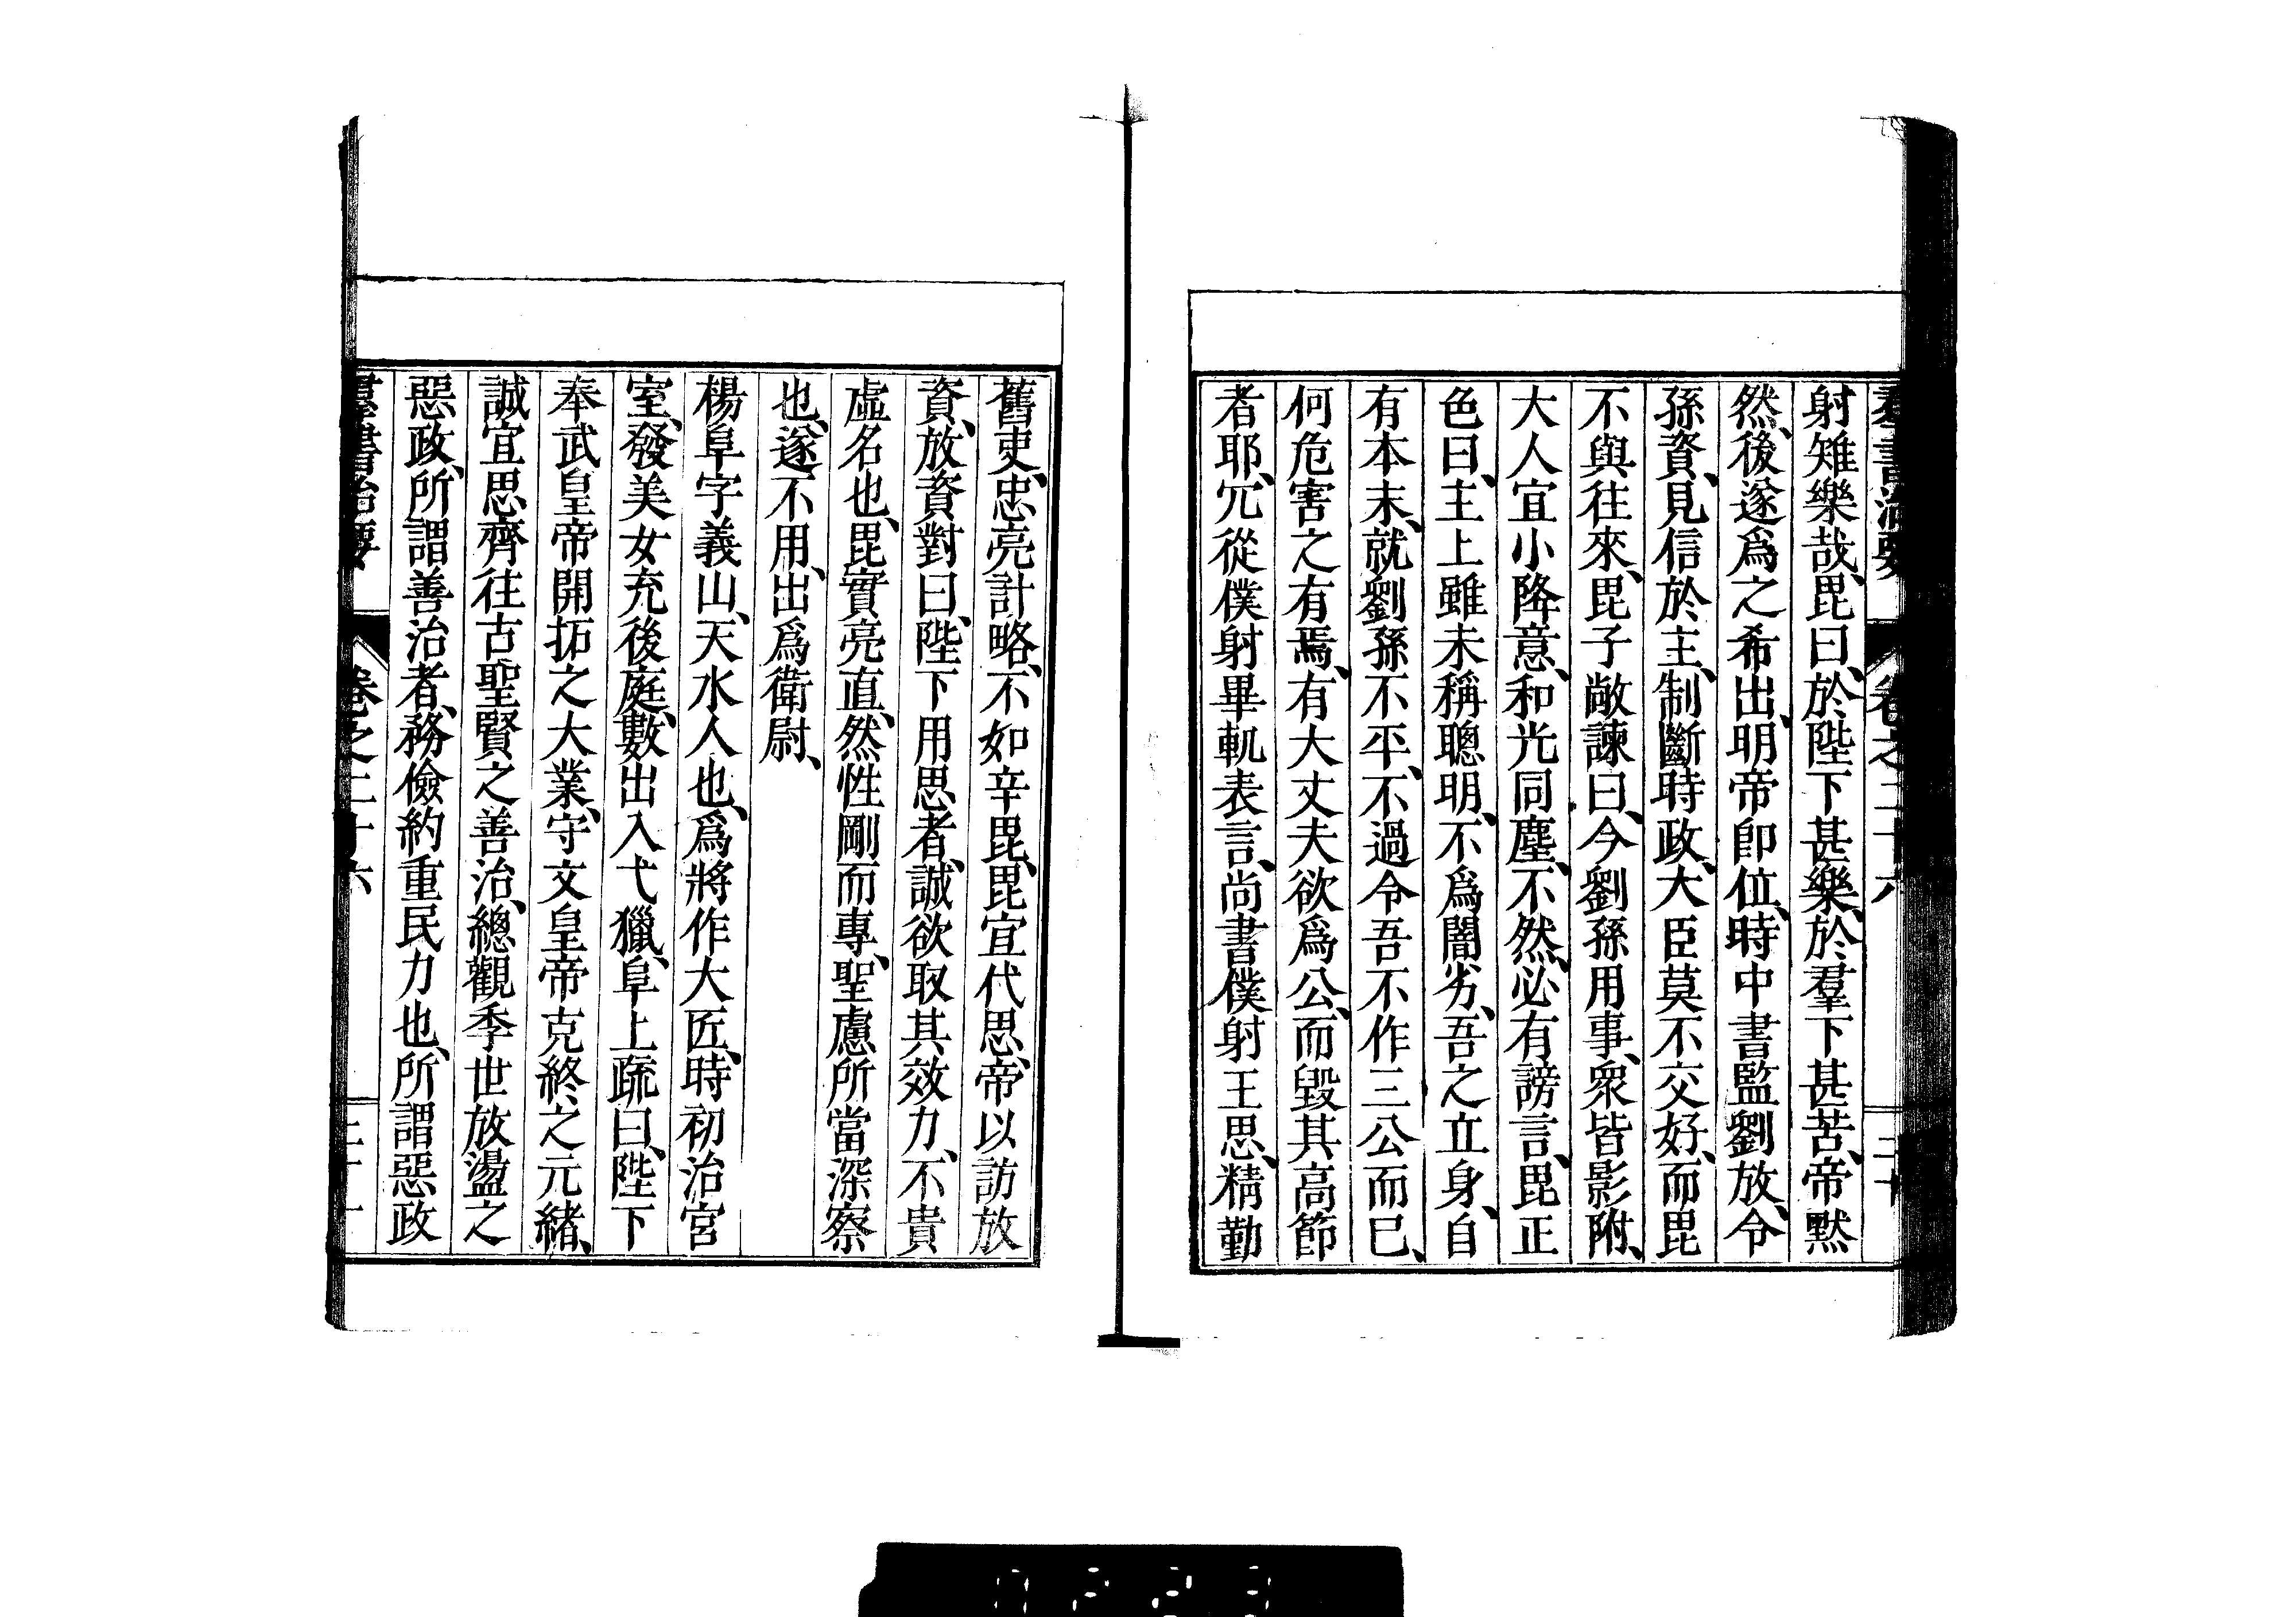 羣書治要 卷之二十六 二十
射雉樂哉、毘曰、於陛下甚樂、於羣下甚苦、帝默
然、後遂爲之希出、明帝卽位、時中書監劉放、令
孫資、見信於主、制斷時政、大臣莫不交好、而毘
不與往來、毘子敞諫曰、今劉孫用事、衆皆影附、
大人宜小降意、和光同塵、不然、必有謗言、毘正
色曰、主上雖未稱聰明、不爲闇劣、吾之立身、自
有本末、就劉孫不平、不過令吾不作三公而已、
何危害之有焉、有大丈夫欲爲公、而毀其高節
者耶、冗從僕射畢軌表言、尚書僕射王思、精勤
舊吏、忠亮計略、不如辛毘、毘宜代思、帝以訪放
資、放資對曰、陛下用思者、誠欲取其效力、不貴
虛名也、毘實亮直、然性剛而專、聖慮所當深察
也、遂不用、出爲衛尉、
楊阜字義山、天水人也、爲將作大匠、時初治宮
室、發美女充後庭、數出入弋獵、阜上疏曰、陛下
奉武皇帝開拓之大業、守文皇帝克終之元緒、
誠宜思齊往古聖賢之善治、總觀季世放盪之
惡政、所謂善治者、務儉約重民力也、所謂惡政
羣書治要 卷之二十六